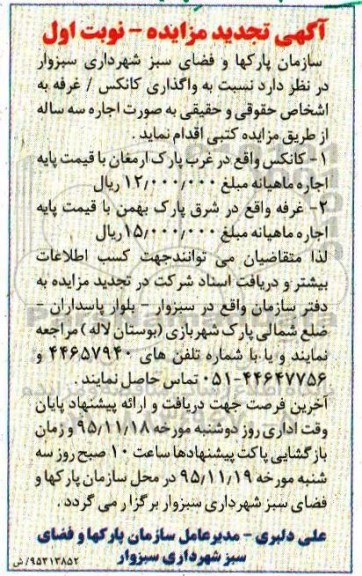 آگهی تجدید مزایده - نوبت اول
سازمان پارکها و فضای سبز شهرداری سبزوار
در نظر دارد نسبت به واگذاری کانکس / غرفه به
اشخاص حقوقی و حقیقی به صورت اجاره سه ساله
از طریق مزایده کتبی اقدام نماید .
۱- کانکس واقع در غرب پارک ارمغان با قیمت پایه
اجاره ماهیانه مبلغ ۱۲/۰۰۰/۰۰۰ ریال
۲- غرفه واقع در شرق پارک بهمن با قیمت پایه
اجاره ماهیانه مبلغ ۱۵/۰۰۰/۰۰۰ ریال
لذا متقاضیان می توانندجهت کسب اطلاعات
بیشتر و دریافت اسناد شرکت در تجدید مزایده به
دفتر سازمان واقع در سبزوار - بلوار پاسداران -
ضلع شمالی پارک شهربازی (بوستان لاله ) مراجعه
نمایند و یا با شماره تلفن های ۴۴۶۵۷۹۴۰ و
۰۵۱-۴۴۶۴۷۷۵۶ تماس حاصل نمایند .
آخرین فرصت جهت دریافت و ارائه پیشنهاد پایان
وقت اداری روز دوشنبه مورخه ۹۵/۱۱/۱۸ و زمان
بازگشایی پاکت پیشنهادها ساعت ۱۰ صبح روز سه
شنبه مورخه ۹۵/۱۱/۱۹ در محل سازمان پارکها و
فضای سبز شهرداری سبزوار برگزار می گردد .
علی دلبری - مدیرعامل سازمان پارکها و فضای
سبز شهرداری سبزوار
۹۵۲۱۳۸۵۲/ش